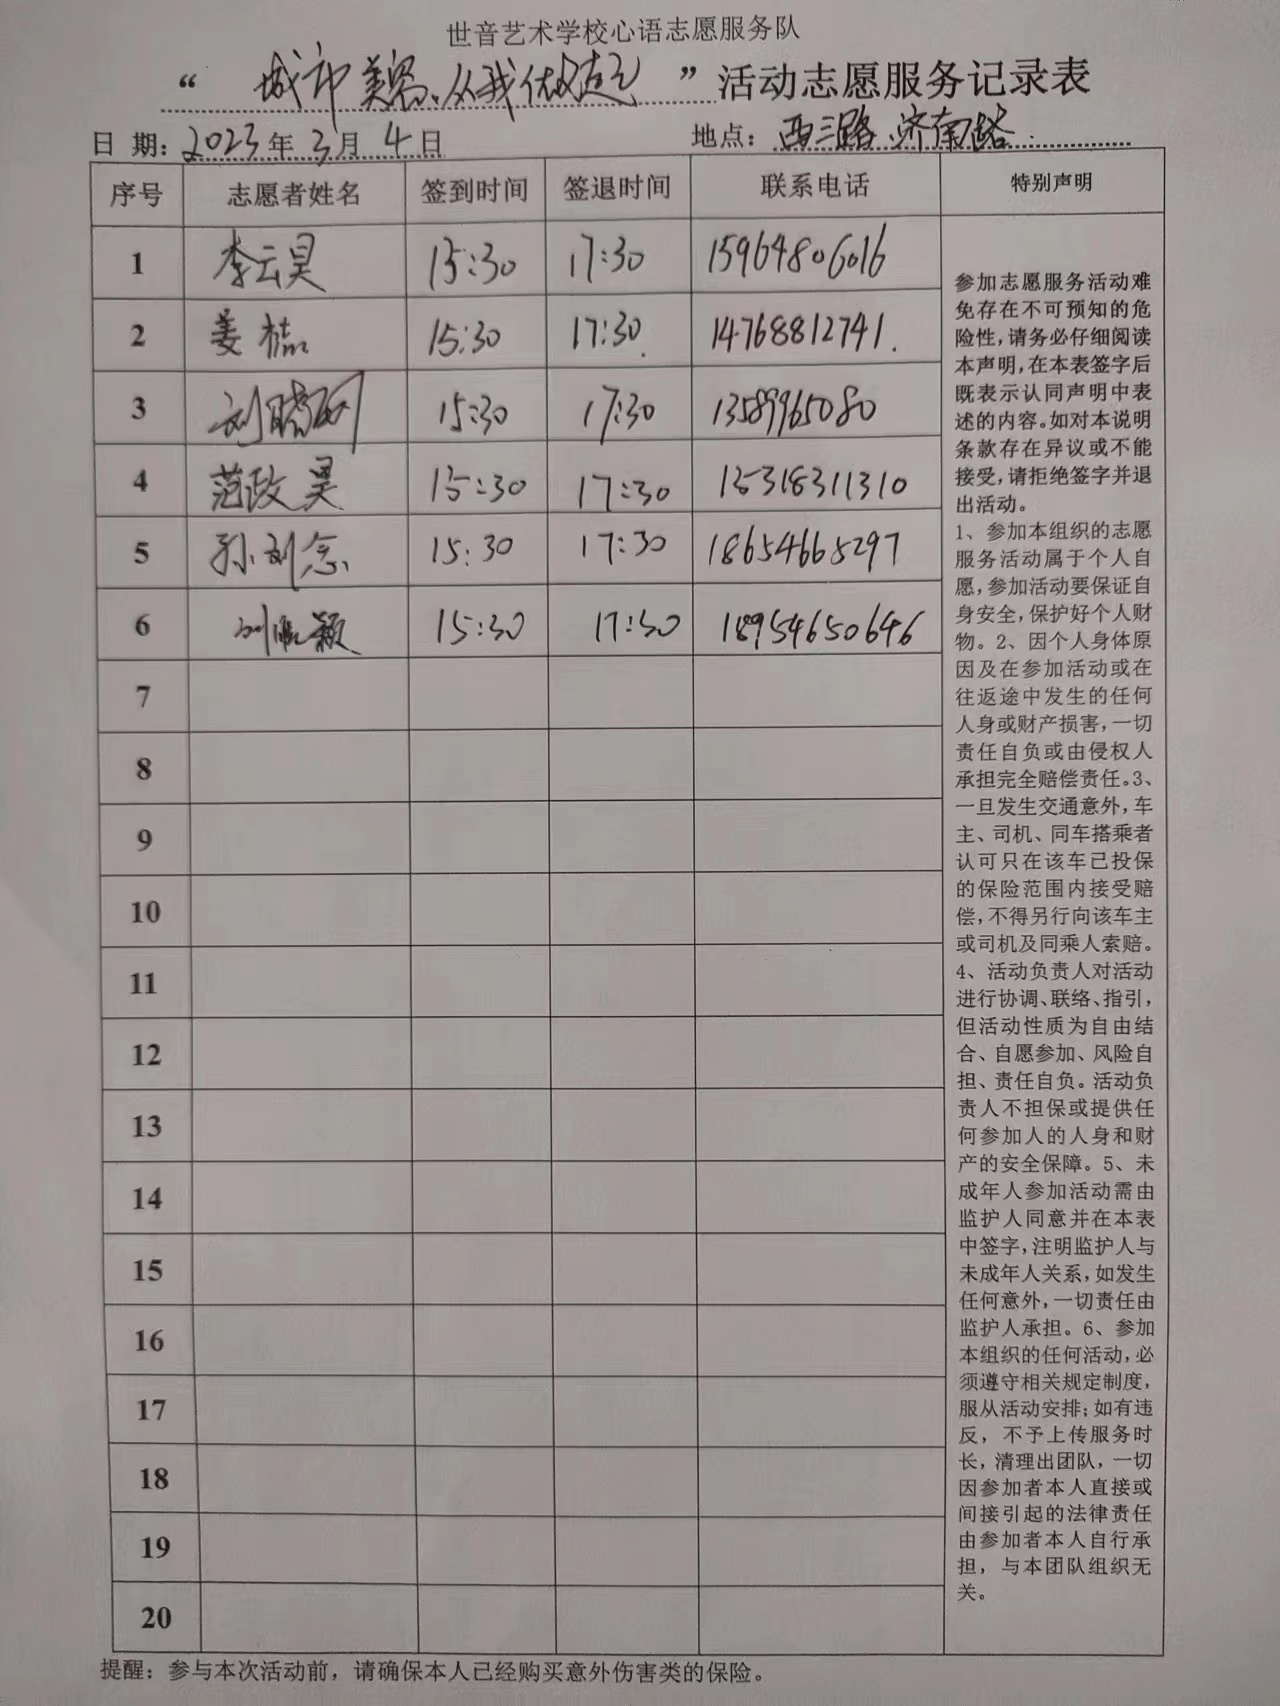 世音艺术学校心语志愿服务队
“城市美容、从我做起”活动志愿服务记录表
日 期：2023年3月4日 地点：西三路、济南路
序号 志愿者姓名 签到时间 签退时间 联系电话 特别声明
1 李云昊 15:30 17:30 15964806016
2 姜 15:30 17:30. 14768812741.
3 刘晴 15:30 17:30 13589965080
4 范政昊 15:30 17:30 15318311310
5 孙刘念 15:30 17:30 18654665297
6 刘 颖 15:30 17:30 18954650646
7
8
9
10
11
12
13
14
15
16
17
18
19
20
参加志愿服务活动难
免存在不可预知的危
险性，请务必仔细阅读
本声明，在本表签字后
既表示认同声明中表
述的内容。如对本说明
条款存在异议或不能
接受，请拒绝签字并退
出活动。
1、参加本组织的志愿
服务活动属于个人自
愿，参加活动要保证自
身安全，保护好个人财
物。2、因个人身体原
因及在参加活动或在
往返途中发生的任何
人身或财产损害，一切
责任自负或由侵权人
承担完全赔偿责任。3、
一旦发生交通意外，车
主、司机、同车搭乘者
认可只在该车已投保
的保险范围内接受赔
偿，不得另行向该车主
或司机及同乘人索赔。
4、活动负责人对活动
进行协调、联络、指引，
但活动性质为自由结
合、自愿参加、风险自
担、责任自负。活动负
责人不担保或提供任
何参加人的人身和财
产的安全保障。5、未
成年人参加活动需由
监护人同意并在本表
中签字，注明监护人与
未成年人关系，如发生
任何意外，一切责任由
监护人承担。6、参加
本组织的任何活动，必
须遵守相关规定制度，
服从活动安排；如有违
反，不予上传服务时
长，清理出团队，一切
因参加者本人直接或
间接引起的法律责任
由参加者本人自行承
担，与本团队组织无
关。
提醒：参与本次活动前，请确保本人已经购买意外伤害类的保险。